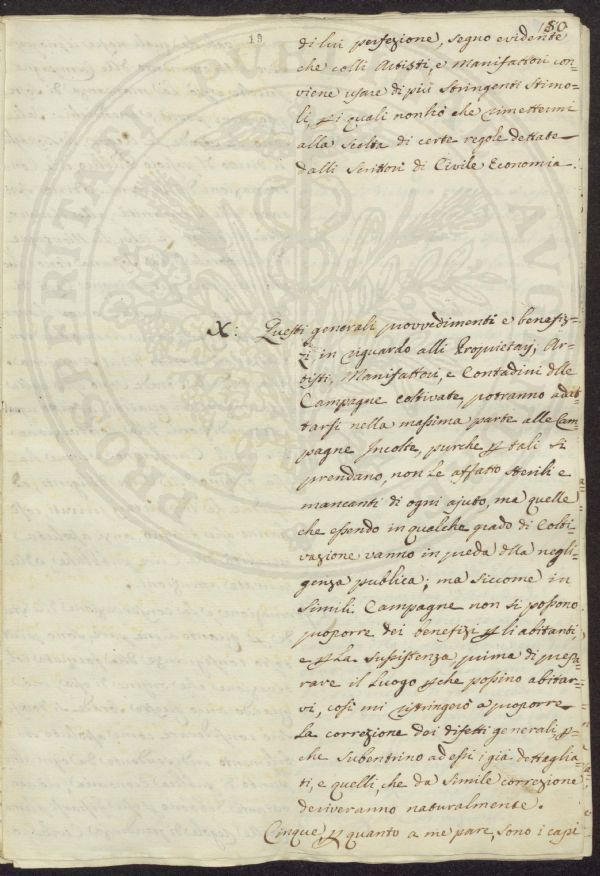 180
19
di lui perfezione, segno evidente
che colli Artisti, e Manifattori con=
viene usare di più stringenti stimo=
li, p i quali non hò che rimettermi
alla scielta di certe regole dettate
dalli Scrittori di Civile Economia.
X: Questi generali provvedimenti e benefiz=
zi in riguardo alli Proprietarj, Ar=
tisti, Manifattori, e Contadini dlle
Campagne coltivate, potranno adat=
tarsi nella massima parte alle Cam=
pagne Incolte, purche p tali si
prendano, non le affatto sterili e
mancanti di ogni ajuto, ma quelle
che essendo in qualche grado di Colti=
vazione vanno in preda dlla negli=
genza publica; ma siccome in
simili Campagne non si possono
proporre dei benefizi p li abitanti,
e p la sussistenza prima di prepa=
rare il Luogo pche possino abitar=
vi, così mi ristringerò a proporre
la correzione dei difetti generali, p=
che subentrino ad essi i già dettaglia=
ti, e quelli, che da simile correzione
deriveranno naturalmente.
Cinque p quanto a me pare, sono i capi